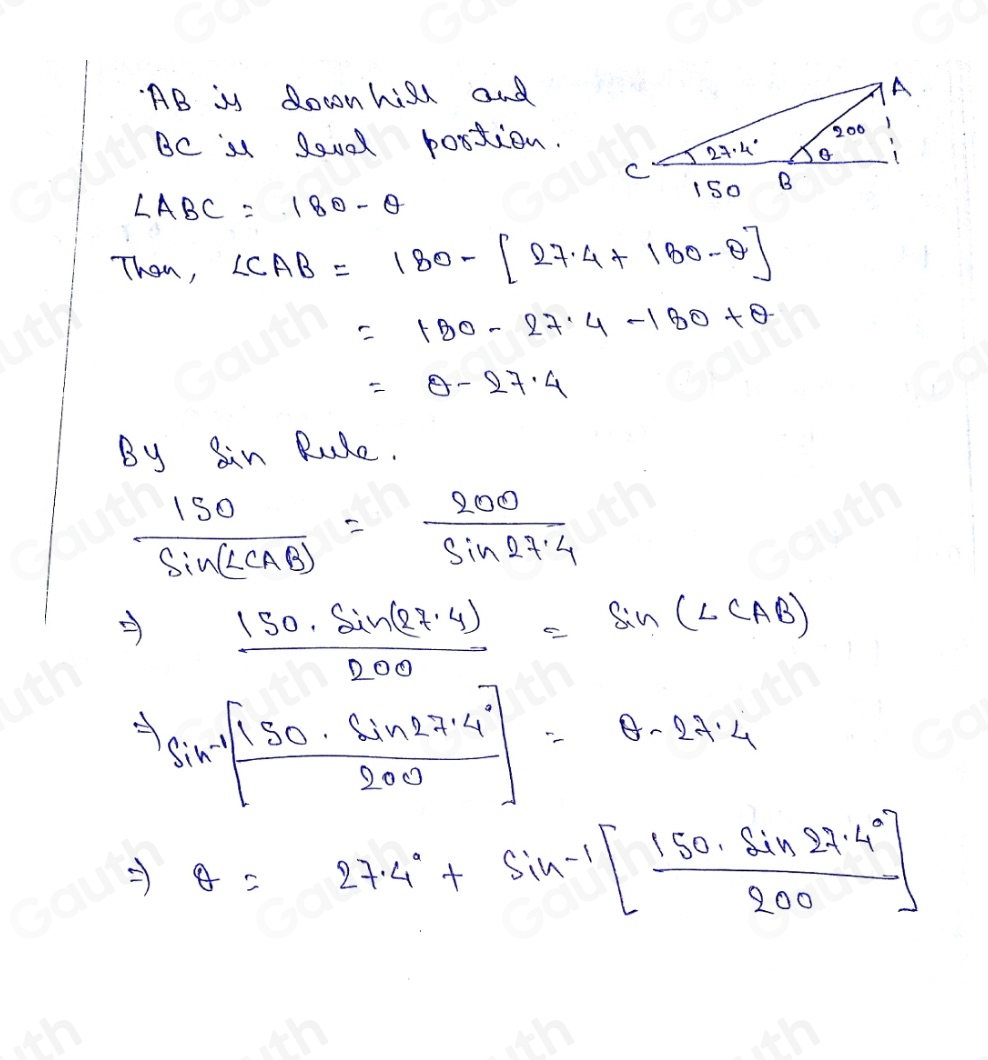 AB is down hill and
BC is level portion.
A
200
27.4°
θ
C
150 B
∠ABC = 180 - θ
Then, ∠CAB = 180 - [27.4 + 180 - θ]
= 180 - 27.4 - 180 + θ
= θ - 27.4
By Sin Rule.
150/Sin(∠CAB) = 200/Sin 27.4
⇒ 150. Sin(27.4)/200 = Sin (∠CAB)
⇒ Sin⁻¹[150. Sin 27.4°/200] = θ - 27.4
⇒ θ = 27.4° + Sin⁻¹[150. Sin 27.4°/200]
Gauth